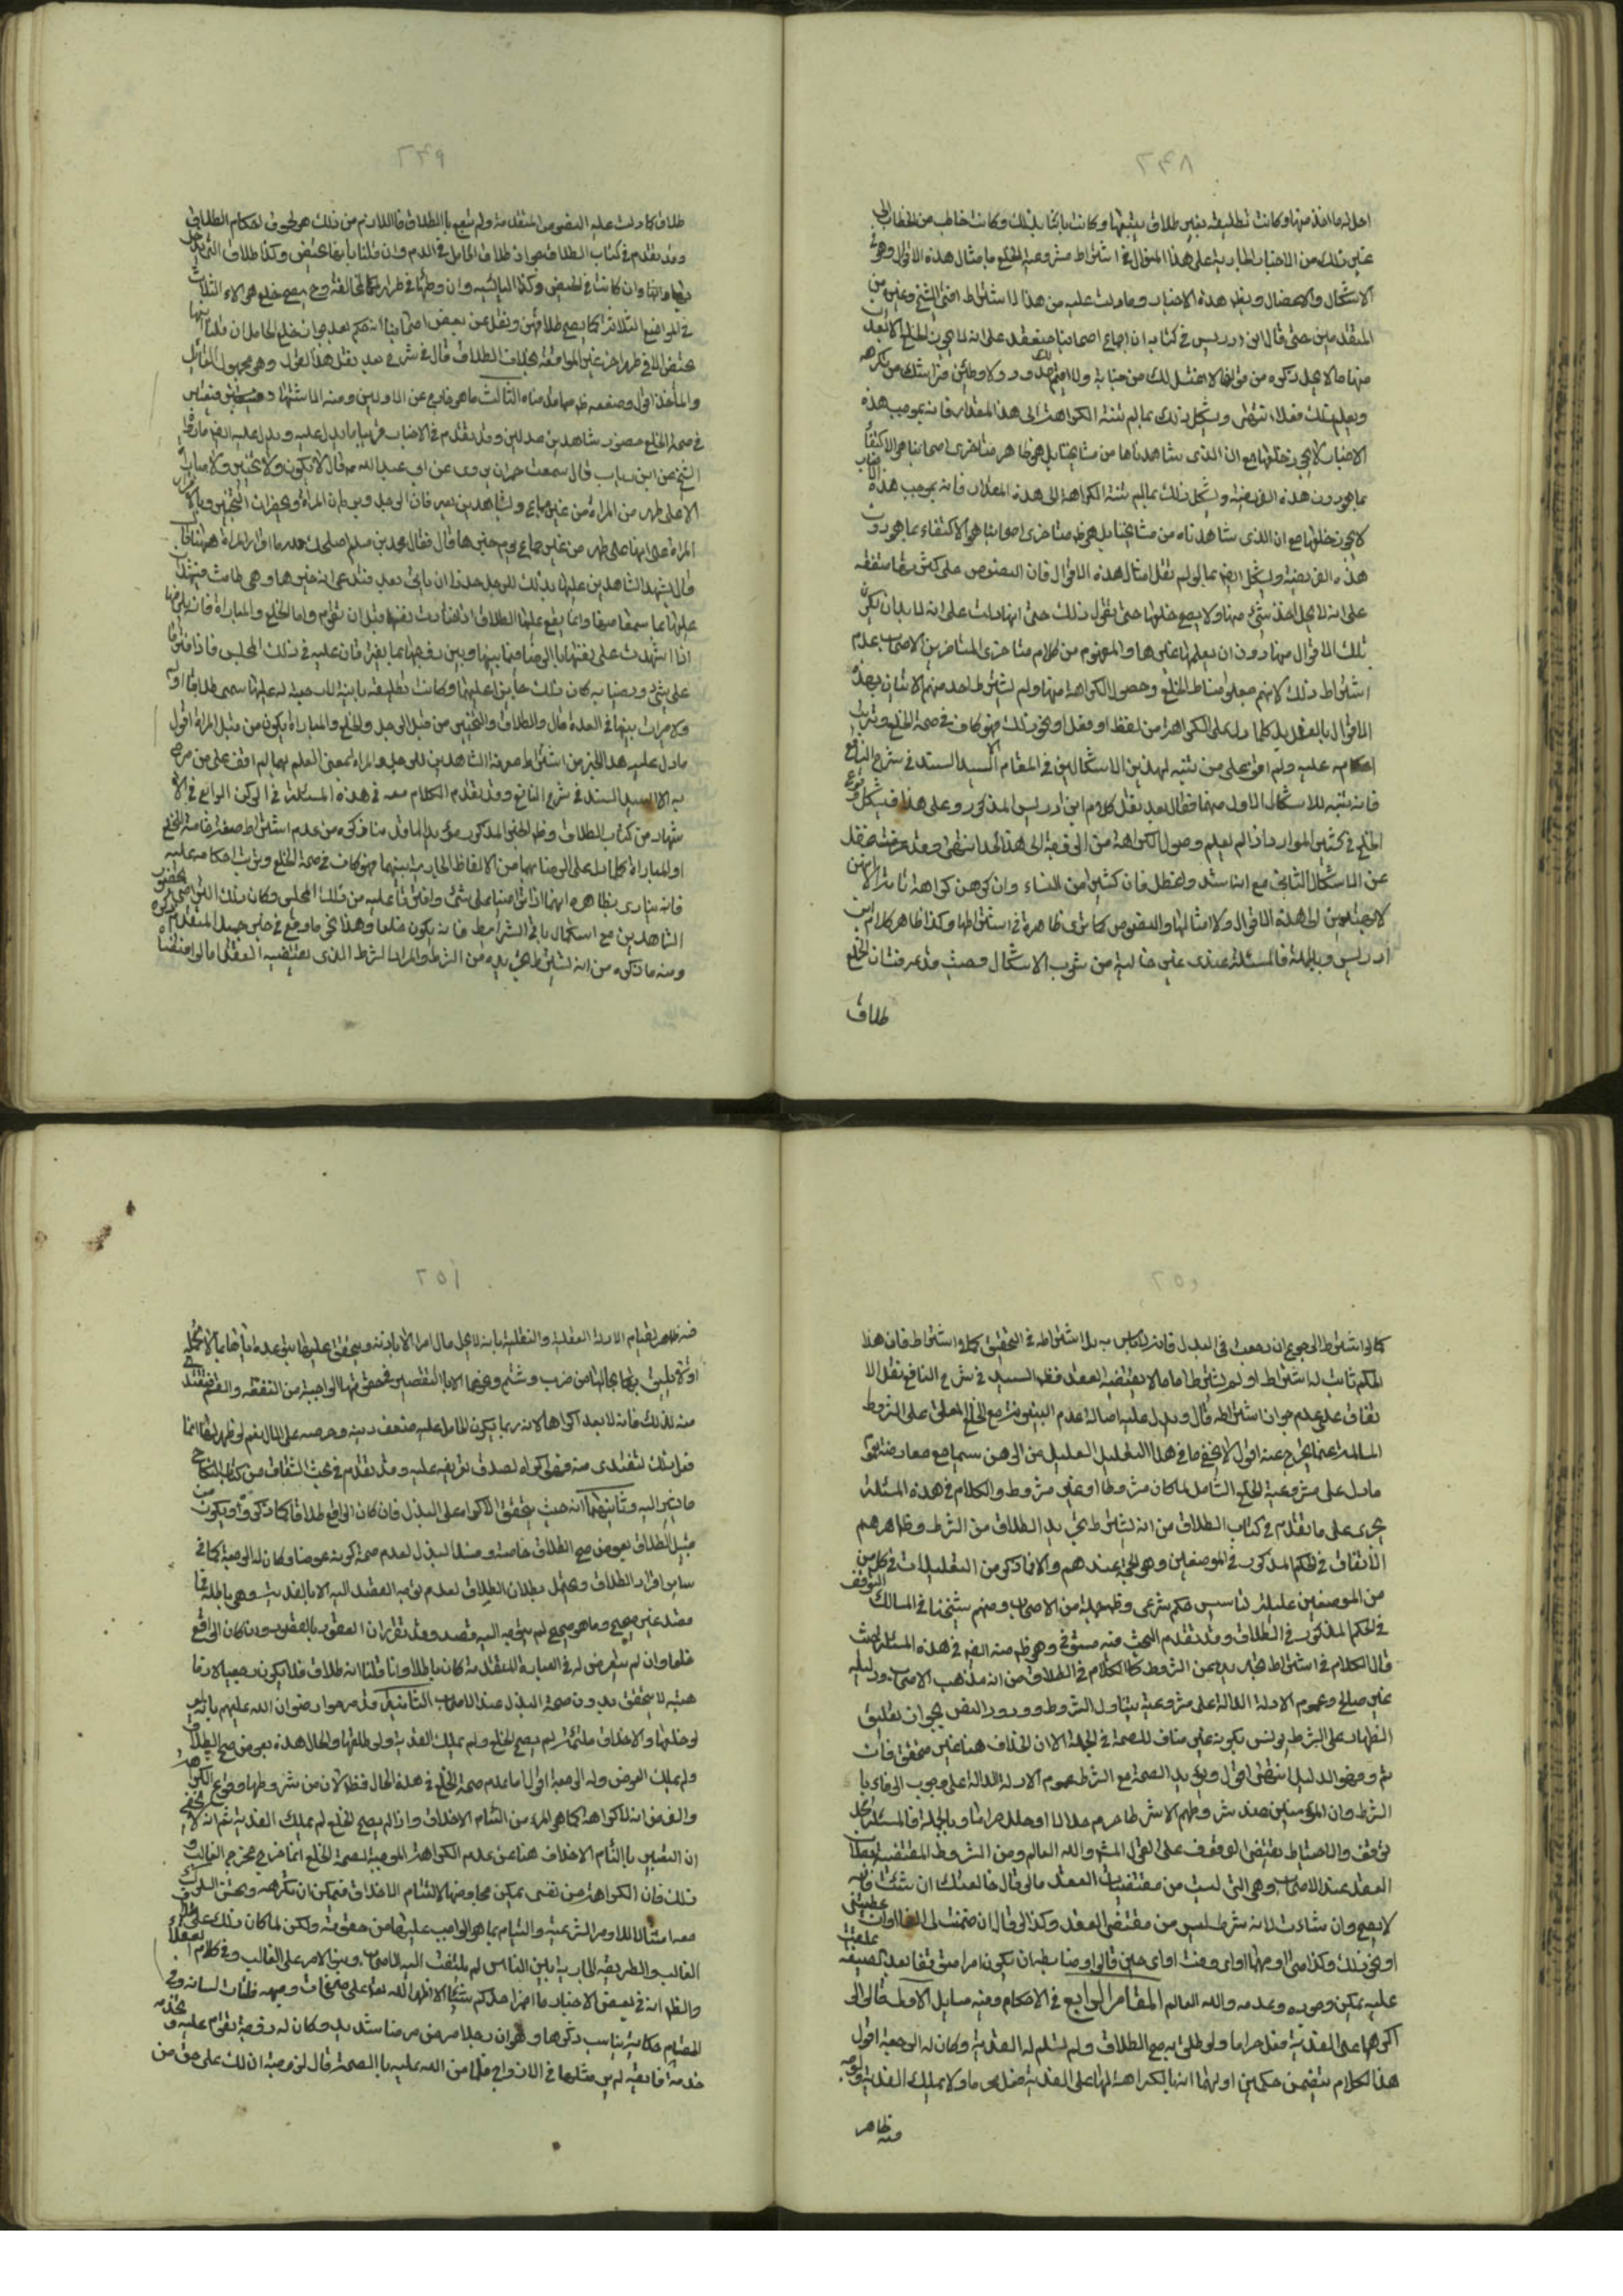 ٢٤٨
احل له ما اخذ منها وكانت تطليقة بغير طلاق يتبعها وكانت باينا بذلك وكانت خاطبا من الخطاب الى
غير ذلك من الاخبار الجارية على هذا المنوال في اشتراط مشروعية الخلع بامثال هذه الاقوال وهو
الاشكال والاعضال وبظهر هذه الاخبار وما دلت عليه من هذا الاشتراط افتى الشيخ وغيره من
المتقدمين حتى قال ابن ادريس في كتابه ان اجماع اصحابنا منعقد على انه لا يجوز الخلع الا بعد
منها ما لا يحل ذكره من قولها لا اغتسل لك من جنابة ولا اقيم لك حدا ولاوطئن فراشك من تكرهه
ويعلم ذلك فعلا انتهى ويشكل ذلك بما لم تنته الكراهة الى هذا المقدار فانه بموجب هذه
الاخبار لا يجوز خلعها مع ان الذي شاهدناه من مشايخنا بل هو ظاهر متاخرى اصحابنا هو الاكتفاء
بما هو دون هذه الفرضية ويشكل ذلك بما لم تنته الكراهة الى هذه المقدار فانه بموجب هذه الاخبار
لا يجوز خلعها مع ان الذي شاهدناه من مشايخنا بل هو ظ متاخرى اصحابنا هو الاكتفاء بما هو دون
هذه الفرضية ويشكل ايضا بما لو لم تقل امثال هذه الاقوال فان النصوص على كثرتها متفقة
على انه لا يحل اخذ شئ منها ولا يصح خلعها حتى تقول ذلك حتى انها دلت على انه لا بد ان يكون
تلك الاقوال منها دون ان يعلمها غيرها والمفهوم من كلام متاخرى المتاخرين الاصحاب عدم
اشتراط ذلك لانهم جعلوا مناط الخلع وحصول الكراهة منها ولم يشترط احد منهم الاتيان بهذه
الاقوال بالفعل بل كلما دل على الكراهة من لفظ او فعل او نحو ذلك فهو كاف في صحة الخلع وترتب
احكامه عليه ولم اقف على من تنبه لهذين الاشكالين في المقام الا السيد السند في شرح النافع
فانه تنبه للاشكال الاول منهما فقال بعد نقل كلام ابن ادريس المذكور وعلى هذا فيشكل وقوع
الخلع في كثير من الموارد اذا لم يعلم وصول الكراهة من الزوجة الى هذا الحد انتهى وقد عرفت غفل
عن الاشكال الثاني مع انه اشد واعضل فان كثيرا من النساء وان كرهن كراهة تامة الا انهن
لا يهتدين الى هذه الاقوال ولا امثالها والنصوص كما ترى ظاهرة في اشتراطها وكذا ظاهر كلام ابن
ادريس وبالجملة فالمسئلة عندى غير خالية من شوب الاشكال وحيث قد عرفت ان الخلع
طلاق
٢٤٩
طلاق كما دلت عليه النصوص المتقدمة ولم يتبع بالطلاق فاللازم من ذلك هو لحوق احكام الطلاق
وقد تقدم في كتاب الطلاق جواز طلاق الحامل في الدم وان قلنا بانها تحيض وكذا طلاق التي لم يدخل
بها وان كانت في الحيض وكذا اليائسة وان وطئها في طهر المخالفة وح يصح خلع هؤلاء الثلاث
في المواضع الثلاثة كما يصح طلاقهن ونقل عن بعض اصحابنا انه حكم بعدم جواز خلع الحامل ان قلنا بانها
تحيض الا في طهر اخر غير المواقعة بخلاف الطلاق قال في شرح بعد نقل هذا القول وهو مجهول القائل
والماخذ اقول وضعفه ظ مما قدمناه الثالث ما هو خارج عن الاولين ومنه الاشهاد فيعتبر
في صحة الخلع حضور شاهدين عدلين وقد تقدم في الاخبار قريبا ما يدل عليه ويدل عليه ايضا ما رواه
الشيخ عن ابن رئاب قال سمعت حمران يروى عن ابى عبدالله ع قال لا يكون ولا تخيير ولا مباراة
الا على طهر من المراة من غير جماع وبشاهدين يعرفان الرجل ويريان المراة ويحضران التخيير واقرار
المراة على انها على طهر من غير جماع يوم خيرها قال فقال محمد بن مسلم اصلحك الله ما اقرار المراة ههنا قال
قال يشهد الشاهدين عليها بذلك للرجل حذرا ان ياتى بعد فتدعى انه خيرها وهي طامث فيشهدان
عليها بما سمعا منها وانما يقع عليها الطلاق اذا اختارت نفسها قبل ان تقوم واما الخلع والمباراة فانه يلزمها
اذا اشهدت على نفسها بالرضا فيما بينها وبين زوجها بما يفترقان عليه في ذلك المجلس فاذا افترقا
على شئ ورضيا به كان ذلك جائزا عليهما وكانت تطليقة باينة لا رجعة له عليها سمى طلاقا او لم
ولا ميراث بينهما في العدة قال والطلاق والتخيير من قبل الرجل والخلع والمباراة يكون من قبل المراة اقول
ما دل عليه هذا الخبر من اشتراط معرفة الشاهدين للرجل والمراة بمعنى العلم بهما لم اقف على من صرح
به الا السيد السند في شرح النافع وقد تقدم الكلام معه في هذه المسئلة في الركن الرابع في الا
شهاد من كتاب الطلاق وظ الخبر المذكور مؤيد لما قدمنا ذكره من عدم اشتراط صيغة خاصة للخلع
او المباراة كلما دل على الرضا بهما من الالفاظ الجارية بينهما فهو كاف في صحة الخلع وترتب احكامه عليه
فانه ينادى بظاهره انهما اذا تراضيا على شئ وافترقا عليه من ذلك المجلس وكان ذلك التراضى بحضور
الشاهدين مع استكمال باقى الشرايط فانه يكون خلعا وهذا نحو ما وقع في خبر جميل المتقدم ذكره
ومنه ما ذكره من انه يشترط تجريده من الشرط والمراد الشرط الذى يقتضيه العقد كما لو اقتضاه
٢٥٠
كما لو اشترط الرجوع ان رجعت في البذل فانه لا باس به بل اشتراطه في التحقيق كلا اشتراط فان هذا
الحكم ثابت له اشترط او لم يشترط اما ما لا يقتضيه العقد فظ السيد في شرح النافع نقل الا
تفاق على عدم جواز اشتراطه قال ويدل عليه اصالة عدم البينونة مع الخلع المعلق على الشروط
السالمة عما يخرج عنه اقول لا يخفى ما في هذا التعليل العليل من الوهن سيما مع معارضته بعموم
ما دل على مشروعية الخلع الشامل لما كان مشروطا او غير مشروط والكلام في هذه المسئلة
يجرى على ما تقدم في كتاب الطلاق من انه يشترط تجريد الطلاق من الشرط وظاهرهم
الاتفاق في الحكم المذكور في الموضعين وهو الحجة عندهم والا فما ذكر من التعليلات في كل من
من الموضعين عليلة تناسيس حكم شرعى وظ جملة من الاصحاب ومنهم شيخنا في المسالك التوقف
في الحكم المذكور في الطلاق وقد تقدم البحث فيه مستوفى وهو ظ منه ايضا في هذه المسئلة حيث
قال الكلام في اشتراط تجريده من الشروط كالكلام في الطلاق من انه مذهب الاصحاب ودليله
غير صالح وعموم الادلة الدالة على مشروعية يتناول الشروط وورود النص بجواز تعليق
الظهار على الشرط يونس بكونه غير مناف للصحة في الجملة الا ان الخلاف هنا غير متحقق فان
تم فهو الدليل انتهى اقول ويؤيد الصحة مع الشرط عموم الادلة الدالة على وجوب الوفاء با
الشرط وان المؤمنين عند شروطهم الا شرطا حرم حلالا او حلل حراما وبالجملة فالمسئلة محل
توقف والاحتياط يقتضى الوقوف على القول المشهور والله العالم ومن الشروط المقتضية لبطلان
العقد عند الاصحاب وهى التى ليست من مقتضيات العقد ما لو قال خالعتك ان شئت فانه
لا يصح وان شاءت لانه شرط ليس من مقتضى العقد وكذا لو قال ان ضمنت لى الفا او ان اعطيتنى
او نحو ذلك وكذا متى او مهما او اى وقت او اى حين قالوا وضابطه ان يكون امرا متوقعا بعد الصيغة
عليه يمكن وجوده وعدمه والله العالم المقام الرابع في الاحكام وفيه مسايل الاولى قالوا لو
اكرهها على الفدية فعل حراما ولو طلق به صح الطلاق ولم تسلم له الفدية وكان له الرجعة اقول
هذا الكلام يتضمن حكمين اولهما انه بالكراهة لها على الفدية فعل محرما ولا يملك الفدية والوجه
فيه ظاهر
٢٥١
فيه ظاهر لقيام الادلة العقلية والنقلية بانه لا يحل مال امرء الا باذنه ويتحقق عليها
او لا يليق بحالها من ضرب وشتم ونحوهما الا بالتقصير في حقوقها الواجبة من النفقة والقسم فتفتدى
منه لذلك فانه لا يعد اكراها لانه ربما يكون الحامل عليه ضعف دينه وحرصه على المال نعم لو ظهر انه انما
فعل ذلك لتفتدى منه فهو اكراه لصدق تعريفه عليه وقد تقدم في بحث الشقاق من كتاب النكاح
ما يشير اليه وثانيهما انه حيث يتحقق الاكراه على البذل فان كان الواقع طلاقا كما ذكروه او يكون من
قبيل الطلاق بعوض صح الطلاق خاصة وفسد البذل لعدم صحة كونه عوضا وكان له الرجعة كما في
ساير افراد الطلاق ويحتمل بطلان الطلاق لعدم توجه القصد اليه الا بالفدية وهي باطلة فما
قصد غير صحيح وما هو صحيح لم يتوجه اليه قصد وقد تقرر ان العقود بالقصود وان كان الواقع
خلعا وان لم يتعرض له في العبارة المتقدمة كان باطلا وان قلنا انه طلاق فلا يكون رجعيا لان ما
هيته لا يتحقق بدون صحة البذل عند الاصحاب الثانية قد صرحوا رضوان الله عليهم بانه
لو خلعها والاخلاق ملتئمة لم يصح الخلع ولم يملك الفدية ولو طلقها والحال هذه بعوض صح الطلاق
ولم يملك العوض وله الرجعة اقول اما عدم صحة الخلع في هذه الحال فظ لان من شروطها وقوع الكراهة
والفرض انه لا كراهة كما هو المراد من التئام الاخلاق واذا لم يصح الخلع لم يملك الفدية ثم انه لا يخفى
ان التعبير بالتئام الاخلاق هنا عن عدم الكراهة الموجبة لصحة الخلع انما خرج مخرج الغالب و
ذلك فان الكراهة من نفس يمكن مجامعتها لالتئام الاخلاق فيمكن ان تكرهه وتحسن السلوك
معه امتثالا للاوامر الشرعية والقيام بما هو الواجب عليها من حقوقه ولكن لما كان ذلك على خلاف
الغالب والطريقة الجارية بين الناس لم يلتفت اليه الاصحاب وبنوا الامر على الغالب وفي كلام
والظ انه في بعض الاخبار ما اضمر احدكم شيئا الا اظهره الله على صفحات وجهه وفلتات لسانه وفى
المقام حكاية يناسب ذكرها وهو ان رجلا مرض مرضا شديدا وكان له زوجة تقوم عليه وتخدمه
خدمة فائقة لم ير مثلها في الازواج فلما من الله عليه بالصحة قال لزوجته ان لك على حق من